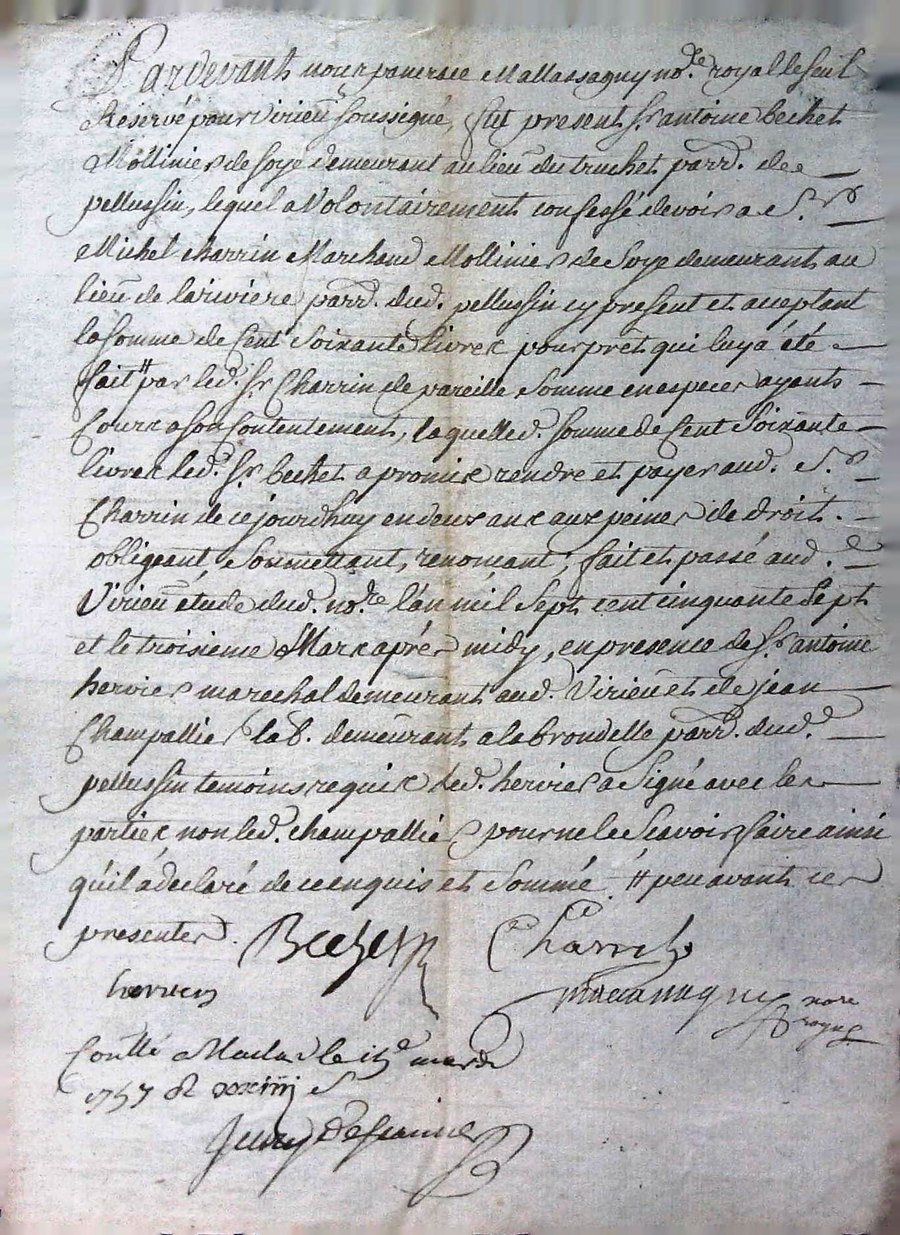 Pardevant nous pierre Mallassagny no.re royal le seul
Reservé pour virieu soussigné, fut present Sr. antoine bechet
Mollinier de soye demeurant au lieu du truchet parr. de
pellussin, lequel a Volontairement confessé devoir a S.r
Michel charrin Marchand Mollinier de Soye demeurant au
lieu de la riviere parr. dud. pellussin cy present et aceptant
la somme de Cent Soixante livres pour prêt qui luy a été
fait # par led. Sr. Charrin de pareille somme en especes ayant
Cours a son Contentement, laquelle d. somme de Cent Soixante
livres led. Sr. bechet a promis rendre et payer aud. S.r
Charrin de ce jourdhuy en deux ans aux peines de droit.
obligeant, Soumettant, renoncant, fait et passé aud.
Virieu étude dud. no.re l'an mil Sept cent cinquante Sept
et le troisieme Mars aprés midy, en presence de Sr. antoine
hervier marechal demeurant aud. Virieu et de jean
Champallier lab. demeurant a la brondelle parr. dud.
pellussin temoins requis led. hervier a Signé avec les
parties non led. champallier pour ne le Scavoir faire ainsi
qu'il a declaré de ce enquis et Sommé # peu avant ces
presentes. Bechet Charrin
hervier Mallassagny no.re royal
Conllé a Maclas le mars
1757 R xxiiij s